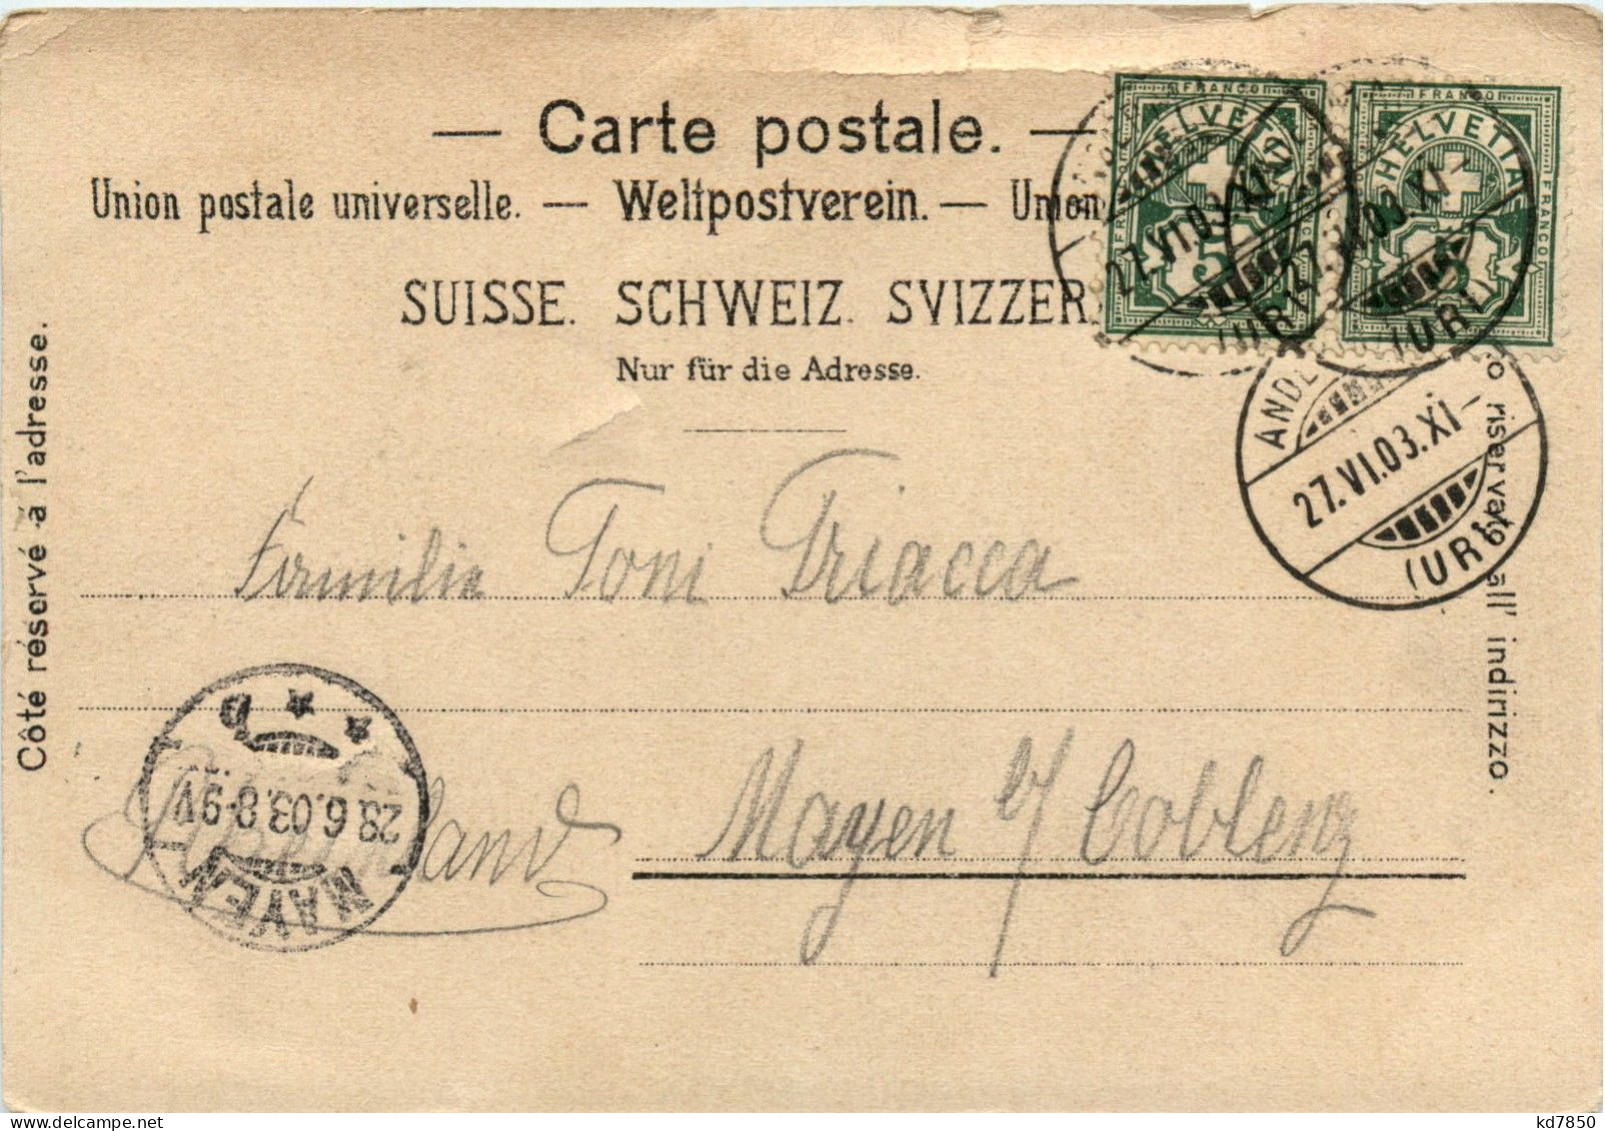 — Carte postale. —
Union postale universelle. — Weltpostverein. — Union
SUISSE. SCHWEIZ. SVIZZER
Nur für die Adresse.
Côté réservé à l'adresse.
riservato all' indirizzo.
FRANCO
HELVETIA
5
FRANCO
HELVETIA
FRANCO
5
27.VI.03.XI-
(URI)
27.VI.03.XI-
(URI)
27.VI.03.XI-
(URI)
Familie Toni Triacca
Mayen b/ Coblenz
MAYEN
28.6.03.8-9V
* * D